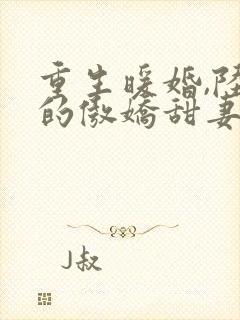 重生暖婚,陆
的傲娇甜妻
J叔